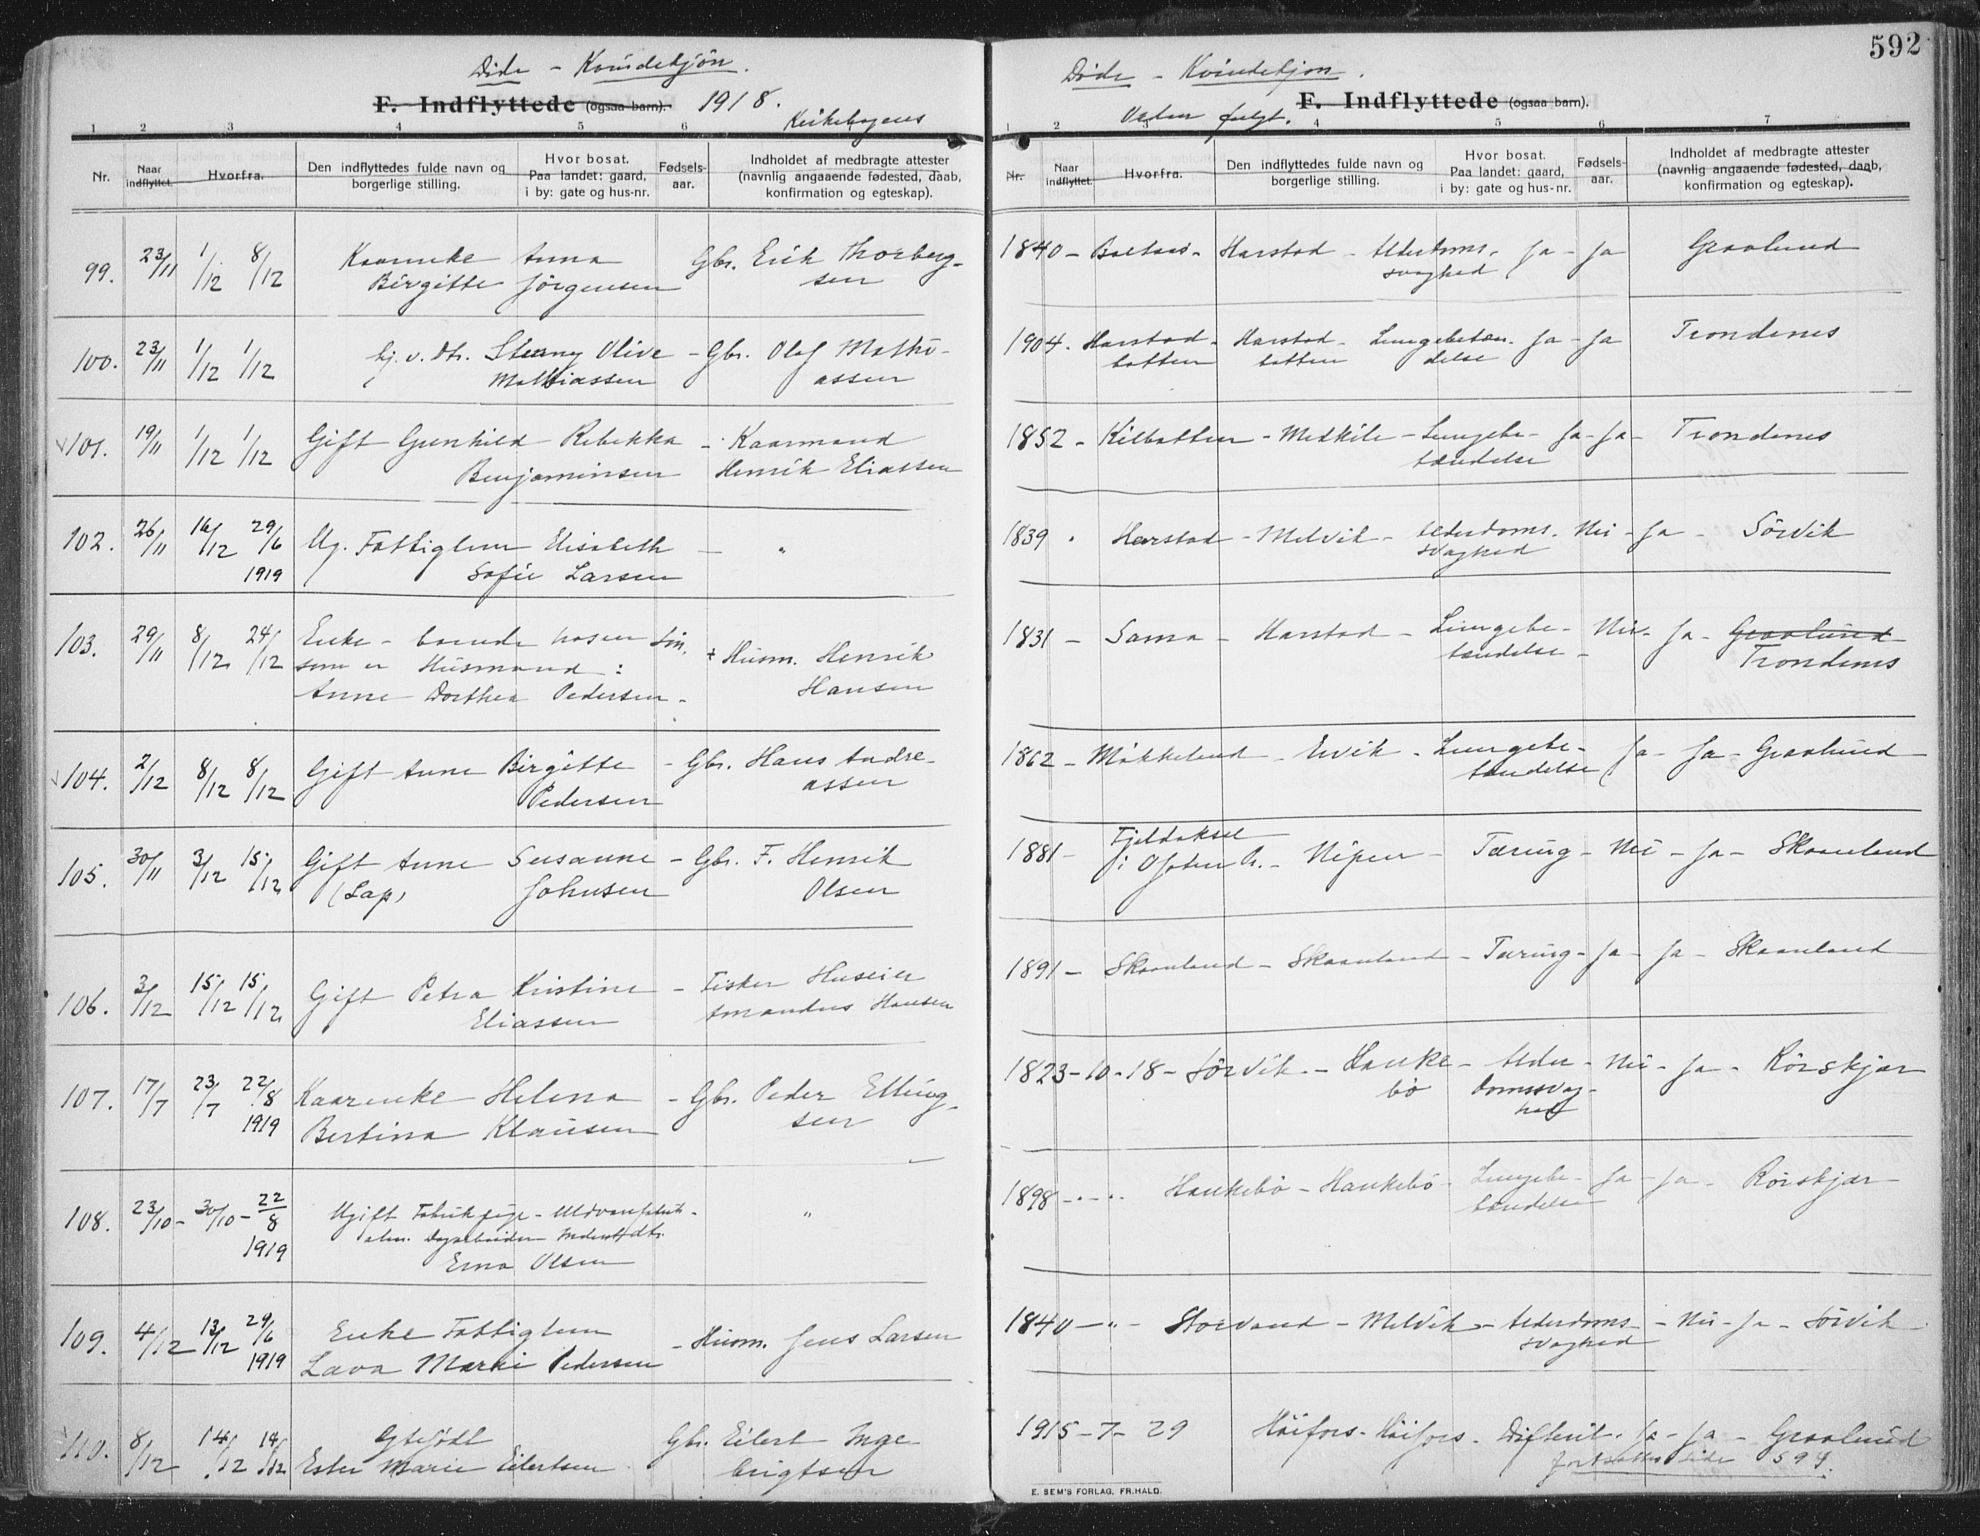 Døde – Kvindekjøn.
F. Indflyttede (ogsaa barn). 1918.
Kirkebogens
1 2 3 4 5 6
Nr.
Naar indflyttet.
Hvorfra.
Den indflyttedes fulde navn og
borgerlige stilling.
Hvor bosat.
Paa landet: gaard,
i by: gate og hus-nr.
Fødsels-
aar.
Indholdet af medbragte attester
(navnlig angaaende fødested, daab,
konfirmation og egteskap).
99. 23/11 1/12 8/12 Kaarenke Anna Gbr. Erik Thorberg-
Birgitte Jörgensen sen
100. 23/11 1/12 1/12 hj. v. dtr. Olive – Gbr. Olaf Mathi-
Mathiassen assen
101. 19/11 1/12 1/12 Gift Gunhild Rebekka – Kaarmand
Benjaminsen Henrik Eliassen
102. 26/11 16/12 29/6 Ug. Fattiglem Elisabeth – "
1919 Sofie Larsen
103. 29/11 8/12 24/12 Enke – boende hosen Sön,
som er Husmand: + Husm. Henrik
Anne Dorthea Pedersen – Hansen
104. 2/12 8/12 8/12 Gift Anne Birgitte – Gbr. Hans Andre-
Pedersen assen
105. 30/11 3/12 15/12 Gift Anne Susanne – Gbr. F. Henrik
(Lap) Johnsen Olsen
106. 3/12 15/12 15/12 Gift Petra Kristine – Fisker Huseier
Eliassen Amandus Hansen
107. 17/7 23/7 22/8 Kaarenke Helena – Gbr. Peder Elling-
1919 Bertina Klausen sen
108. 23/10 – 30/10 – 22/8 Ugift Fabrikpige – "
1919 Dagarbeider
Erna Olsen
109. 4/12 13/12 29/6 Enke Fattiglem – Husm. Jens Larsen
1919 Lava Marie Pedersen
110. 8/12 14/12 14/12 Gbr. Eilert Inge
Ester Marie Eilertsen brigtsen
592
Døde – Kvindekjøn.
F. Indflyttede (ogsaa barn).
1 2 3 4 5 6 7
Nr.
Naar indflyttet.
Hvorfra.
Den indflyttedes fulde navn og
borgerlige stilling.
Hvor bosat.
Paa landet: gaard,
i by: gate og hus-nr.
Fødsels-
aar.
Indholdet af medbragte attester
(navnlig angaaende fødested, daab,
konfirmation og egteskap).
1840 – – Harstad – Alderdoms- Ja – Ja Graalund
svaghed
1904. Harstad- Harstad- Lungebetæn- Ja – Ja Trondenes
botten botten delse
1852 – Kilbotten – Medkile – Lungebe- Ja – Ja – Trondenes
tændelse
1839 . Harstad – Melvik – Alderdoms- Nei – Ja – Sörvik
svaghed
1831 – Sama – Harstad – Lungebe- Nei – Ja – Graalund
tændelse – Trondenes
1862 – Møkkeland – Ervik – Lungebe- Ja – Ja – Graalund
tændelse
1881 – Fjeldaksel
i Ofoten – Nipen – Tæring – Nei – Ja – Skaanland
1891 – Skaanland – Skaanland – Tæring – Ja – Ja – Skaanland
1823 – 10 – 18 – Sörvik – Hauke- – Alder- – Nei – Ja – Rörskjær
bö domssvag-
hed
1898 – " – " Haukebö – Haukebö – Lungebe- Ja – Ja – Rörskjær
tændelse
1840 – " – Storvand – Melvik – Alderdoms- – Nei – Ja – Sörvik
svaghed
1915 – 7 – 29 Höifors – Höifors – Difterit. Ja – Ja – Graalund
fortsættes side 594.
E. SEM'S FORLAG, FR.HALD.